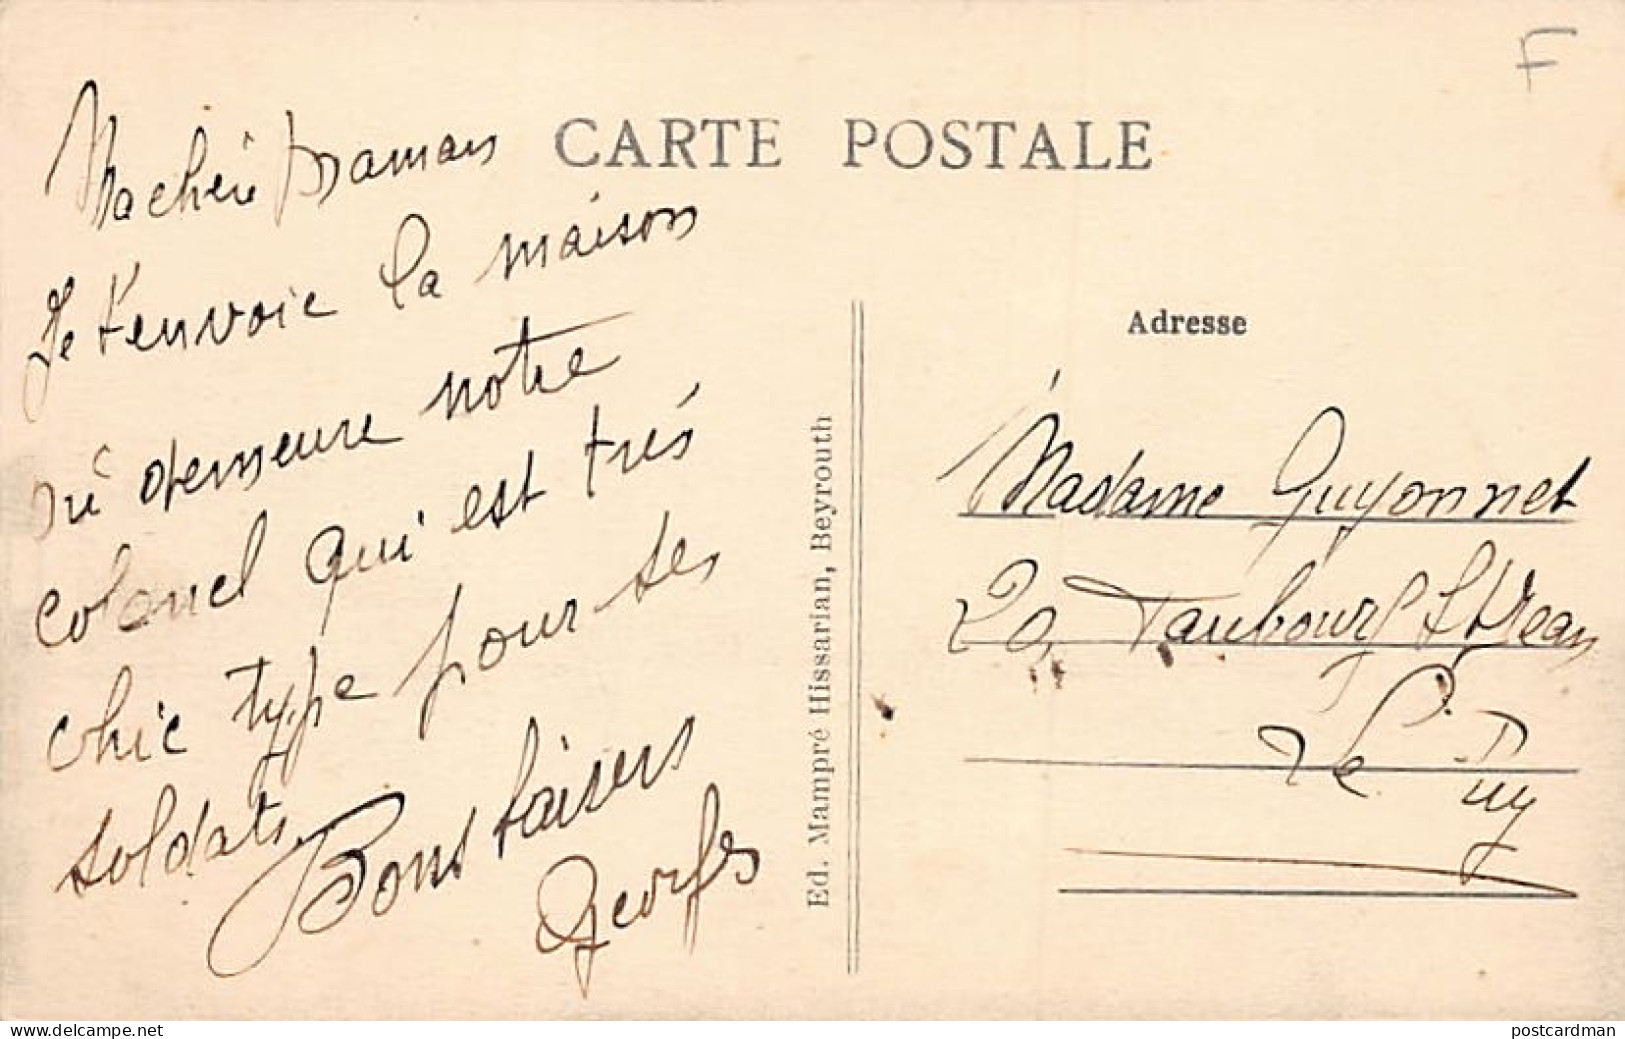 F
CARTE POSTALE
Ma chérie Maman
Je t'envoie la maison
où demeure notre
colonel qui est trés
chic type pour ses
soldats.
Bons baisers
Georges
Ed. Mampré Hissarian, Beyrouth
Adresse
Madame Guyonnet
20, Faubourg St Jean
Le Puy
www.delcampe.net
postcardman